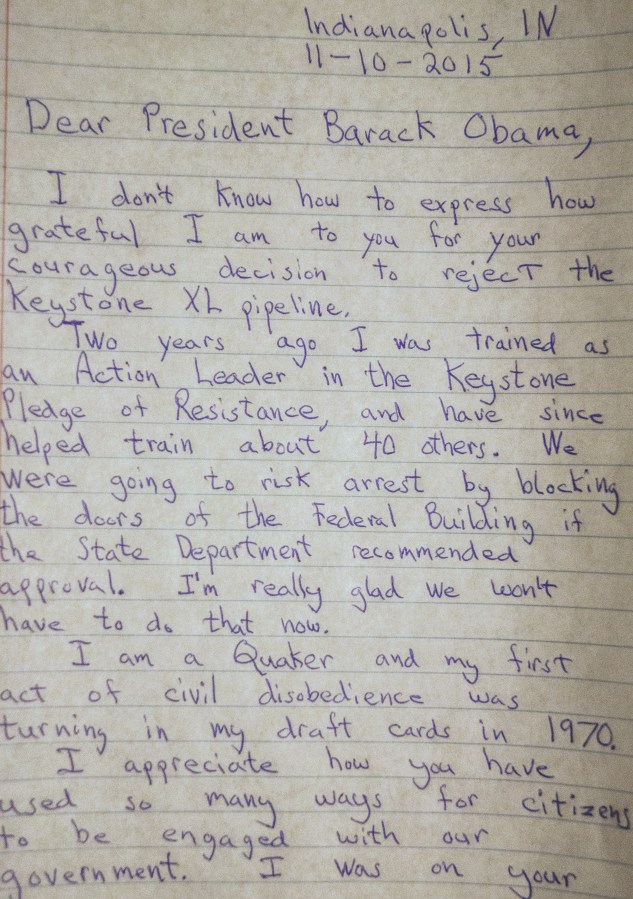 Indianapolis, IN
11-10-2015
Dear President Barack Obama,
I don't know how to express how
grateful I am to you for your
courageous decision to reject the
Keystone XL pipeline.
Two years ago I was trained as
an Action Leader in the Keystone
Pledge of Resistance, and have since
helped train about 40 others. We
were going to risk arrest by blocking
the doors of the Federal Building if
the State Department recommended
approval. I'm really glad we won't
have to do that now.
I am a Quaker and my first
act of civil disobedience was
turning in my draft cards in 1970.
I appreciate how you have
used so many ways for citizens
to be engaged with our
government. I was on your